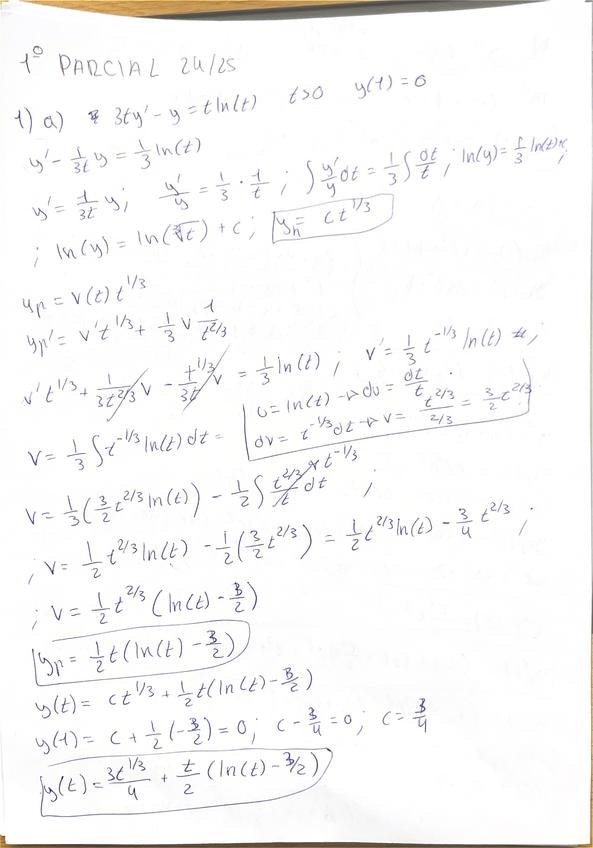 1º PARCIAL 24/25
1) a) 3ty' - y = t ln(t) t>0 y(1) = 0
y' - 1/3t y = 1/3 ln(t)
y' = 1/3t y; y'/y = 1/3 · 1/t ; ∫ y'/y dt = 1/3 ∫ dt/t ; ln(y) = 1/3 ln(t)+c;
; ln(y) = ln(∛t) + c ; y_h = ct^1/3
y_p = v(t) t^1/3
y_p' = v't^1/3 + 1/3 v 1/t^2/3
v't^1/3 + 1/3t^2/3 v - t^1/3/3t v = 1/3 ln(t) ; v' = 1/3 t^-1/3 ln(t) ;
v = 1/3 ∫ t^-1/3 ln(t) dt = u = ln(t) → du = dt/t
dv = t^-1/3 dt → v = t^2/3/2/3 = 3/2 t^2/3
v = 1/3 (3/2 t^2/3 ln(t)) - 1/2 ∫ t^2/3/t dt t^-1/3 ;
; v = 1/2 t^2/3 ln(t) - 1/2 (3/2 t^2/3) = 1/2 t^2/3 ln(t) - 3/4 t^2/3 ;
; v = 1/2 t^2/3 (ln(t) - 3/2)
y_p = 1/2 t (ln(t) - 3/2)
y(t) = ct^1/3 + 1/2 t (ln(t) - 3/2)
y(1) = c + 1/2 (-3/2) = 0; c - 3/4 = 0; c = 3/4
y(t) = 3t^1/3/4 + t/2 (ln(t) - 3/2)